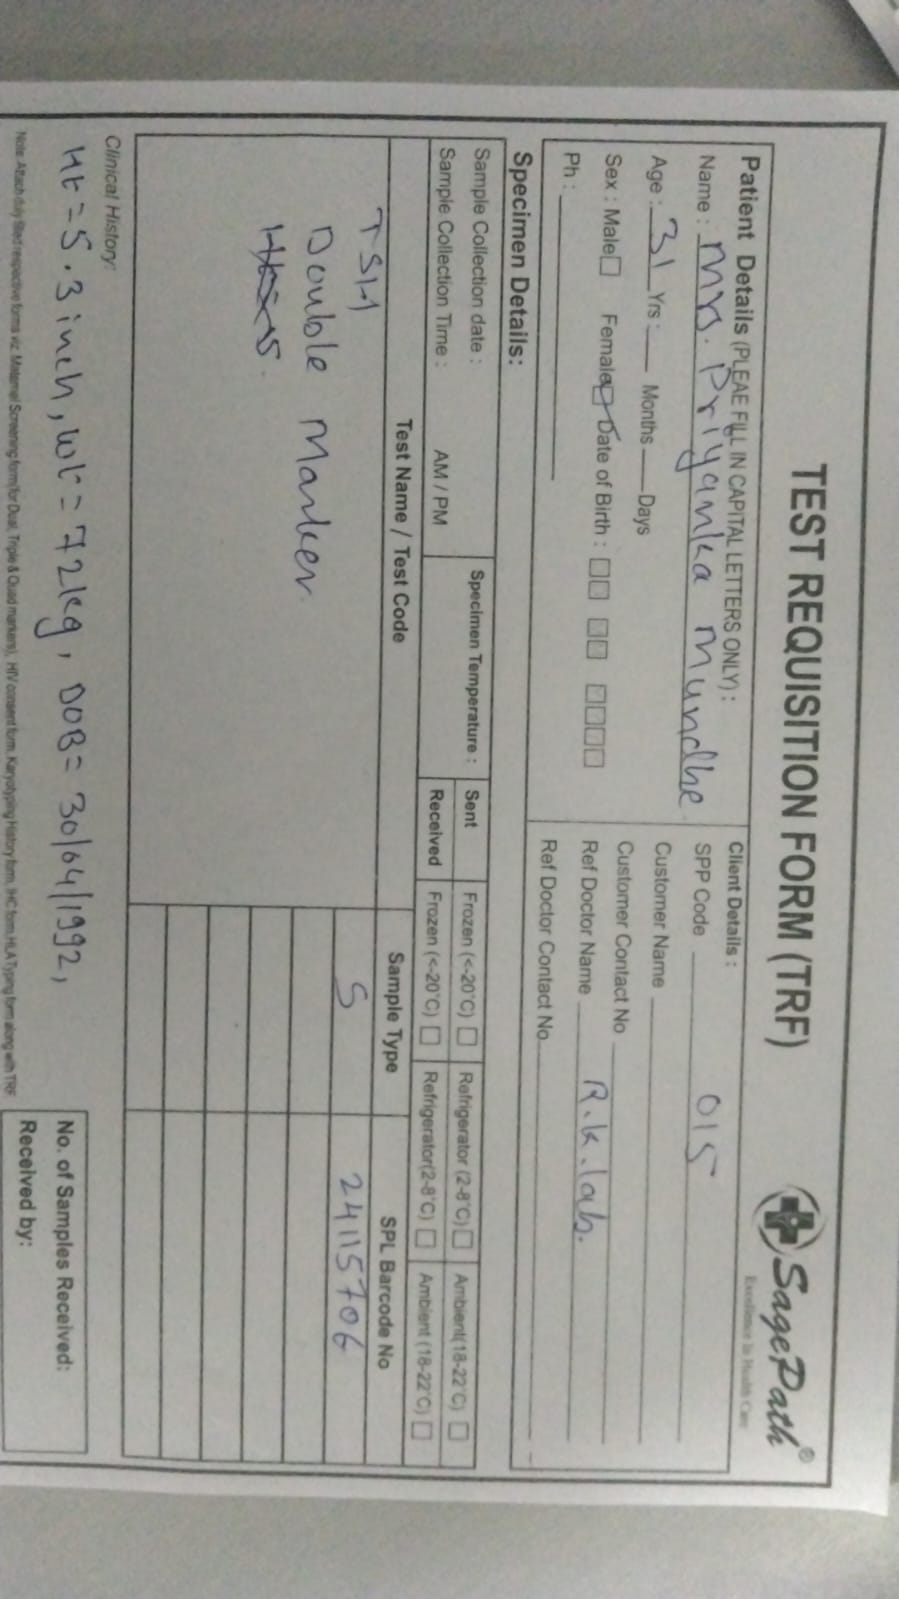 TEST REQUISITION FORM (TRF)
SagePath®
Excellence in Health Care
Patient Details (PLEAE FILL IN CAPITAL LETTERS ONLY) :
Name : Mrs. Priyanka Mundhe
Age : 31 Yrs : Months Days
Sex : Male☐ Female☑ Date of Birth : ☐☐ ☐☐ ☐☐☐☐
Ph :
Client Details :
SPP Code 015
Customer Name
Customer Contact No
Ref Doctor Name R.k.lab.
Ref Doctor Contact No
Specimen Details:
Sample Collection date :
Sample Collection Time : AM / PM
Specimen Temperature :
Sent Frozen (<-20°C) ☐ Refrigerator (2-8°C) ☐ Ambient(18-22°C) ☐
Received Frozen (<-20°C) ☐ Refrigerator(2-8°C) ☐ Ambient (18-22°C) ☐
Test Name / Test Code Sample Type SPL Barcode No
TSH S 24115706
Double Marker.
Clinical History:
Ht = 5.3 inch, wt = 72kg, DOB = 30/04/1992,
Note: Attach duly filled respective forms viz. Maternal Screening form(for Dual, Triple & Quad markers), HIV consent form, Karyotyping History form, IHC form, HLA Typing form along with TRF
No. of Samples Received:
Received by: